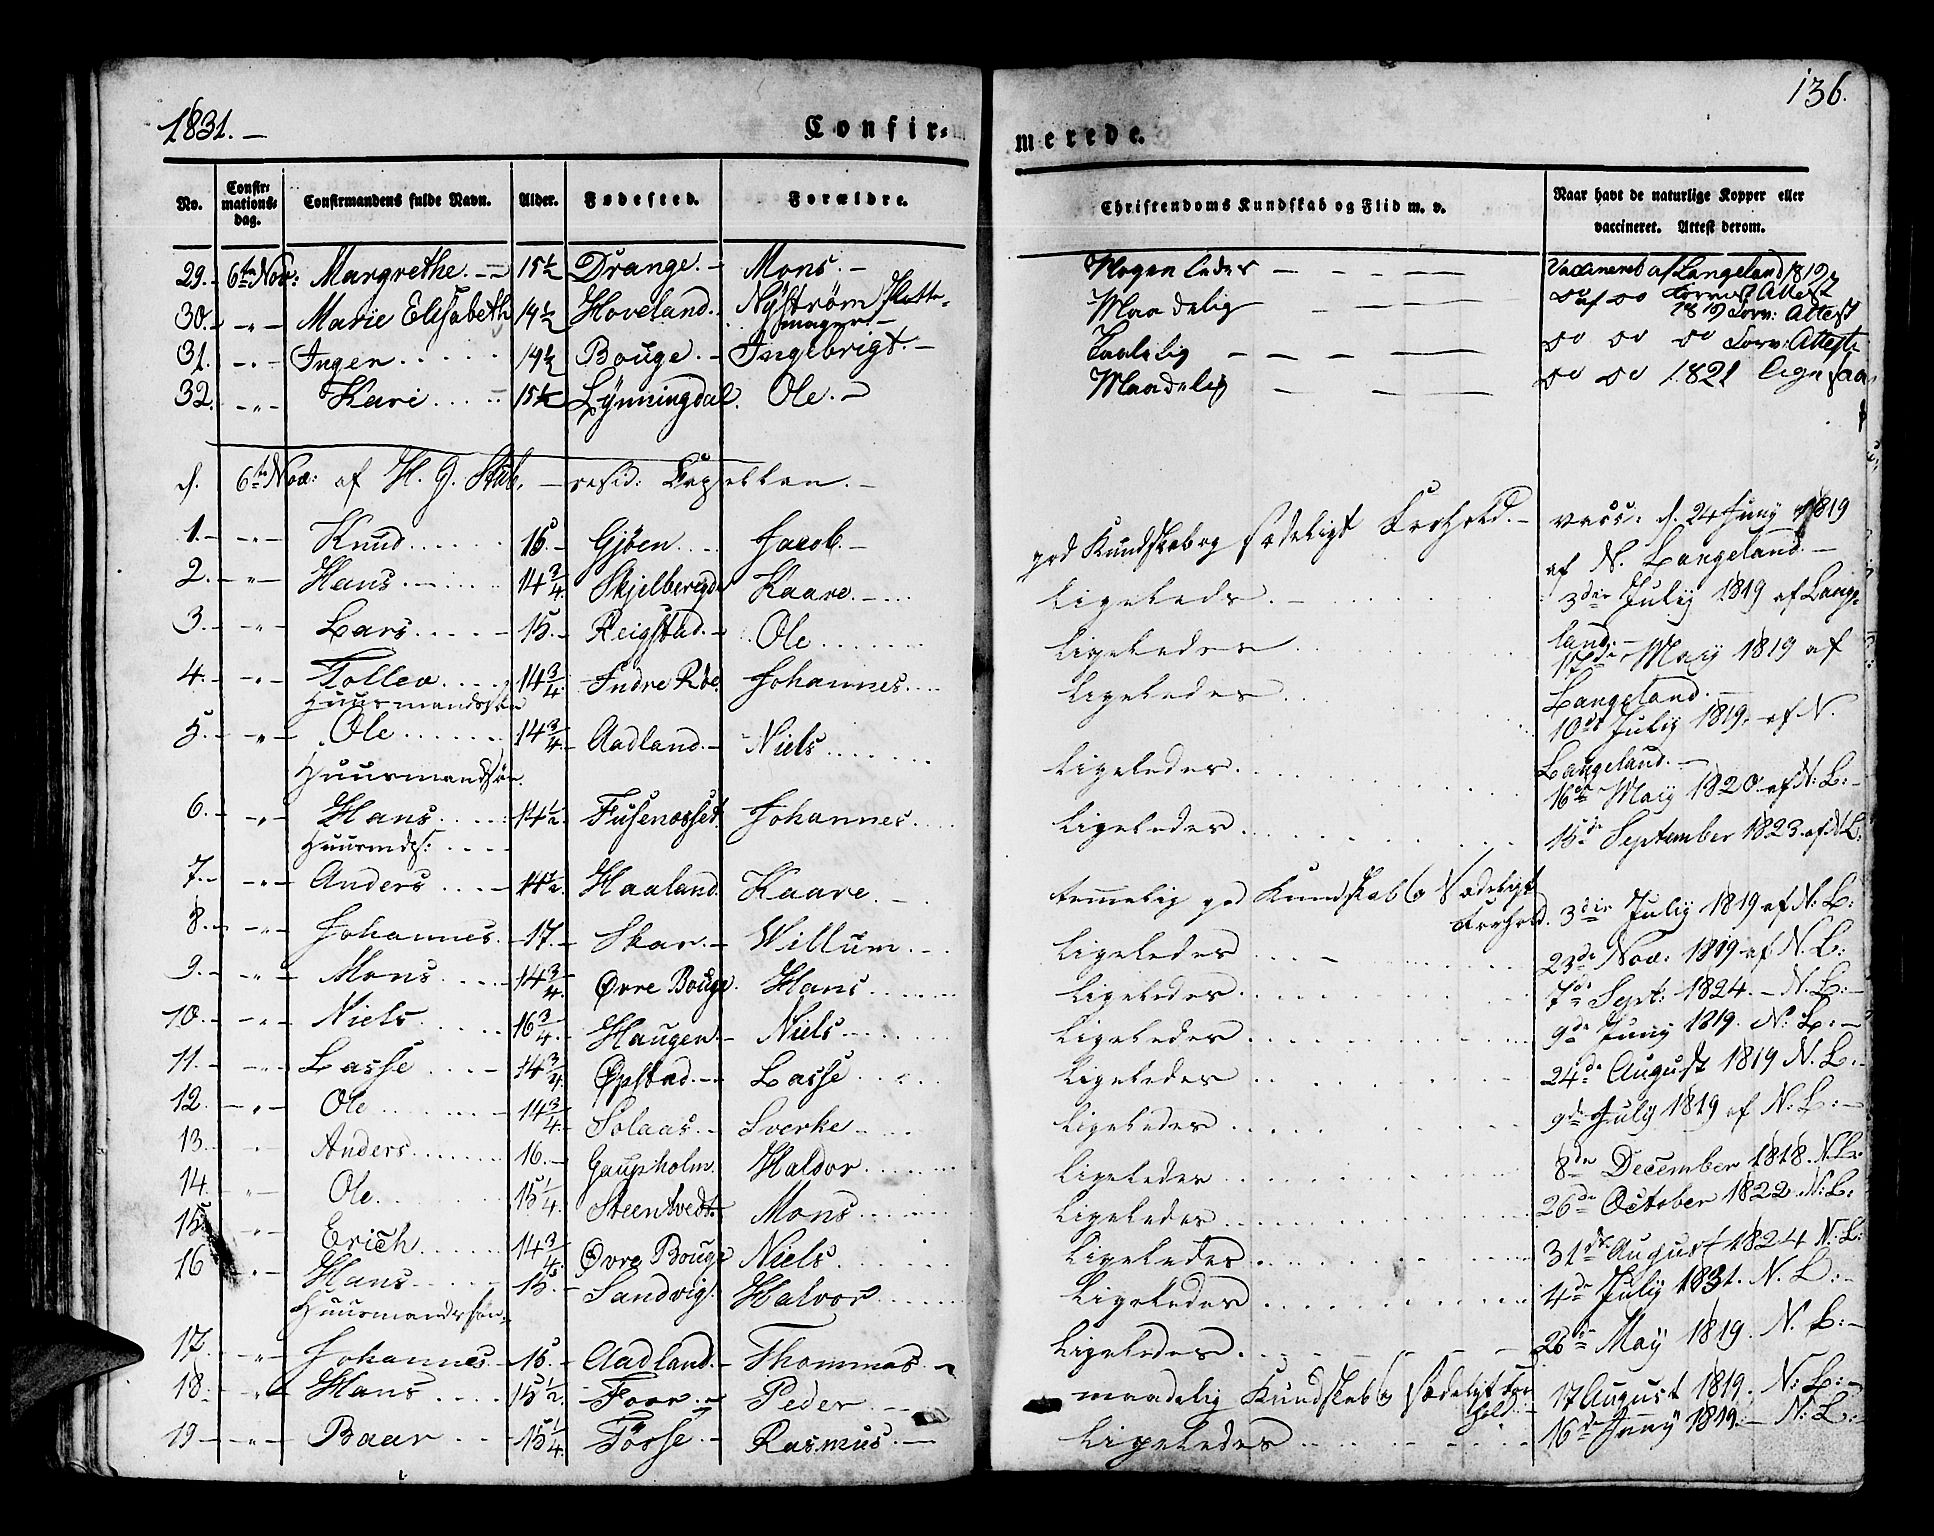 1831. —
Confir=
merede.
136.
No.
Confir=
mations=
dag.
Confirmandens fulde Navn.
Alder.
Fødested.
Forældre.
Christendoms Kundskab og Flid m. v.
Naar havt de naturlige Kopper eller
vaccineret. Attest derom.
29. 6te Nov: Margrethe. 15½ Drange. Mons. — Nogenledes Vaccineret af Langeland 1819
30. — " — Marie Elisabeth 14½ Hoveland. Nystrøm Hatte- Maadelig do af do
mager. — 1819 Attest
31. — " — Ingen 14½ Bouge. Ingebrigt. — do do do Attest
32. — " — Kari 15½ Lynningdal. Ole. — Maadelig do do 1821 ligesaa
d. 6te Nov: af H. G. Stub, — resid: Capellan. —
1. — " — Knud 16. Gjøen Jacob. — god Kundskab og sædeligt Forhold. — vacc: d. 24 Juny 1819
af N. Langeland. —
2. — " — Hans 14¾ Skjelbereg Kaare. ligeleds. 3die July 1819 af Lange-
land. —
3. — " — Lars 15. Reigstad. Ole ligeledes 17de Maij 1819 af
Langeland. —
4. — " — Tollev 14¾ Indre Røe. Johannes ligeledes 10de July 1819. af N.
Huusmandssøn
Langeland. —
5. — " — Ole 14¾ Aadland. Niels ligeledes 16de Maij 1820 af N: L: —
Huusmandssøn
6. — " — Hans 14½. Fusenæsset Johannes ligeledes 15de September 1823 af N: L:
Huusmds:
7. — " — Anders 14½. Haaland Kaare temelig god Kundskab og Sædeligt
Forhold. 3die July 1819 af N: L:
8. — " — Johannes. 17. Skar. Willum ligeledes 23de Nov: 1819 af N. L:
9. — " — Mons 14¾. Øvre Bouge. Hans ligeledes 7de Sept: 1824. — N. L: —
10. — " — Niels 16¾. Haugen. Niels ligeledes 9de Juny 1819. N. L: —
11. — " — Lasse 14¾ Øpstad. Lasse ligeledes 24de August 1819 N. L: —
12. — " — Ole 14¾. Solaas. Sverke ligeledes 9de July 1819 af N. L: —
13. " Anders 16. Gaupholm. Haldor ligeledes 8de December 1818. N. L:
14. " Ole 15¼. Steentvedt. Mons ligeledes 26de October 1822. N: L:
15. " Erich 14¾. Øvre Bouge Niels ligeledes 31de August 1824 N. L:
16 " Hans 15. Sandvig. Halvor ligeledes 4de July 1831. N. L: —
Huusmandssøn.
17. " Johannes 15. Aadland. Thommas ligeledes. 26de May 1819. N. L: —
18. " Hans 15½. Foor. Peder maadelig Kundskab og Sædeligt For
hold 17 August 1819. N: L: —
19 — " — Baar 15¼. Tösse. Rasmus. — ligeledes 16de Juny 1819. — N: L: —